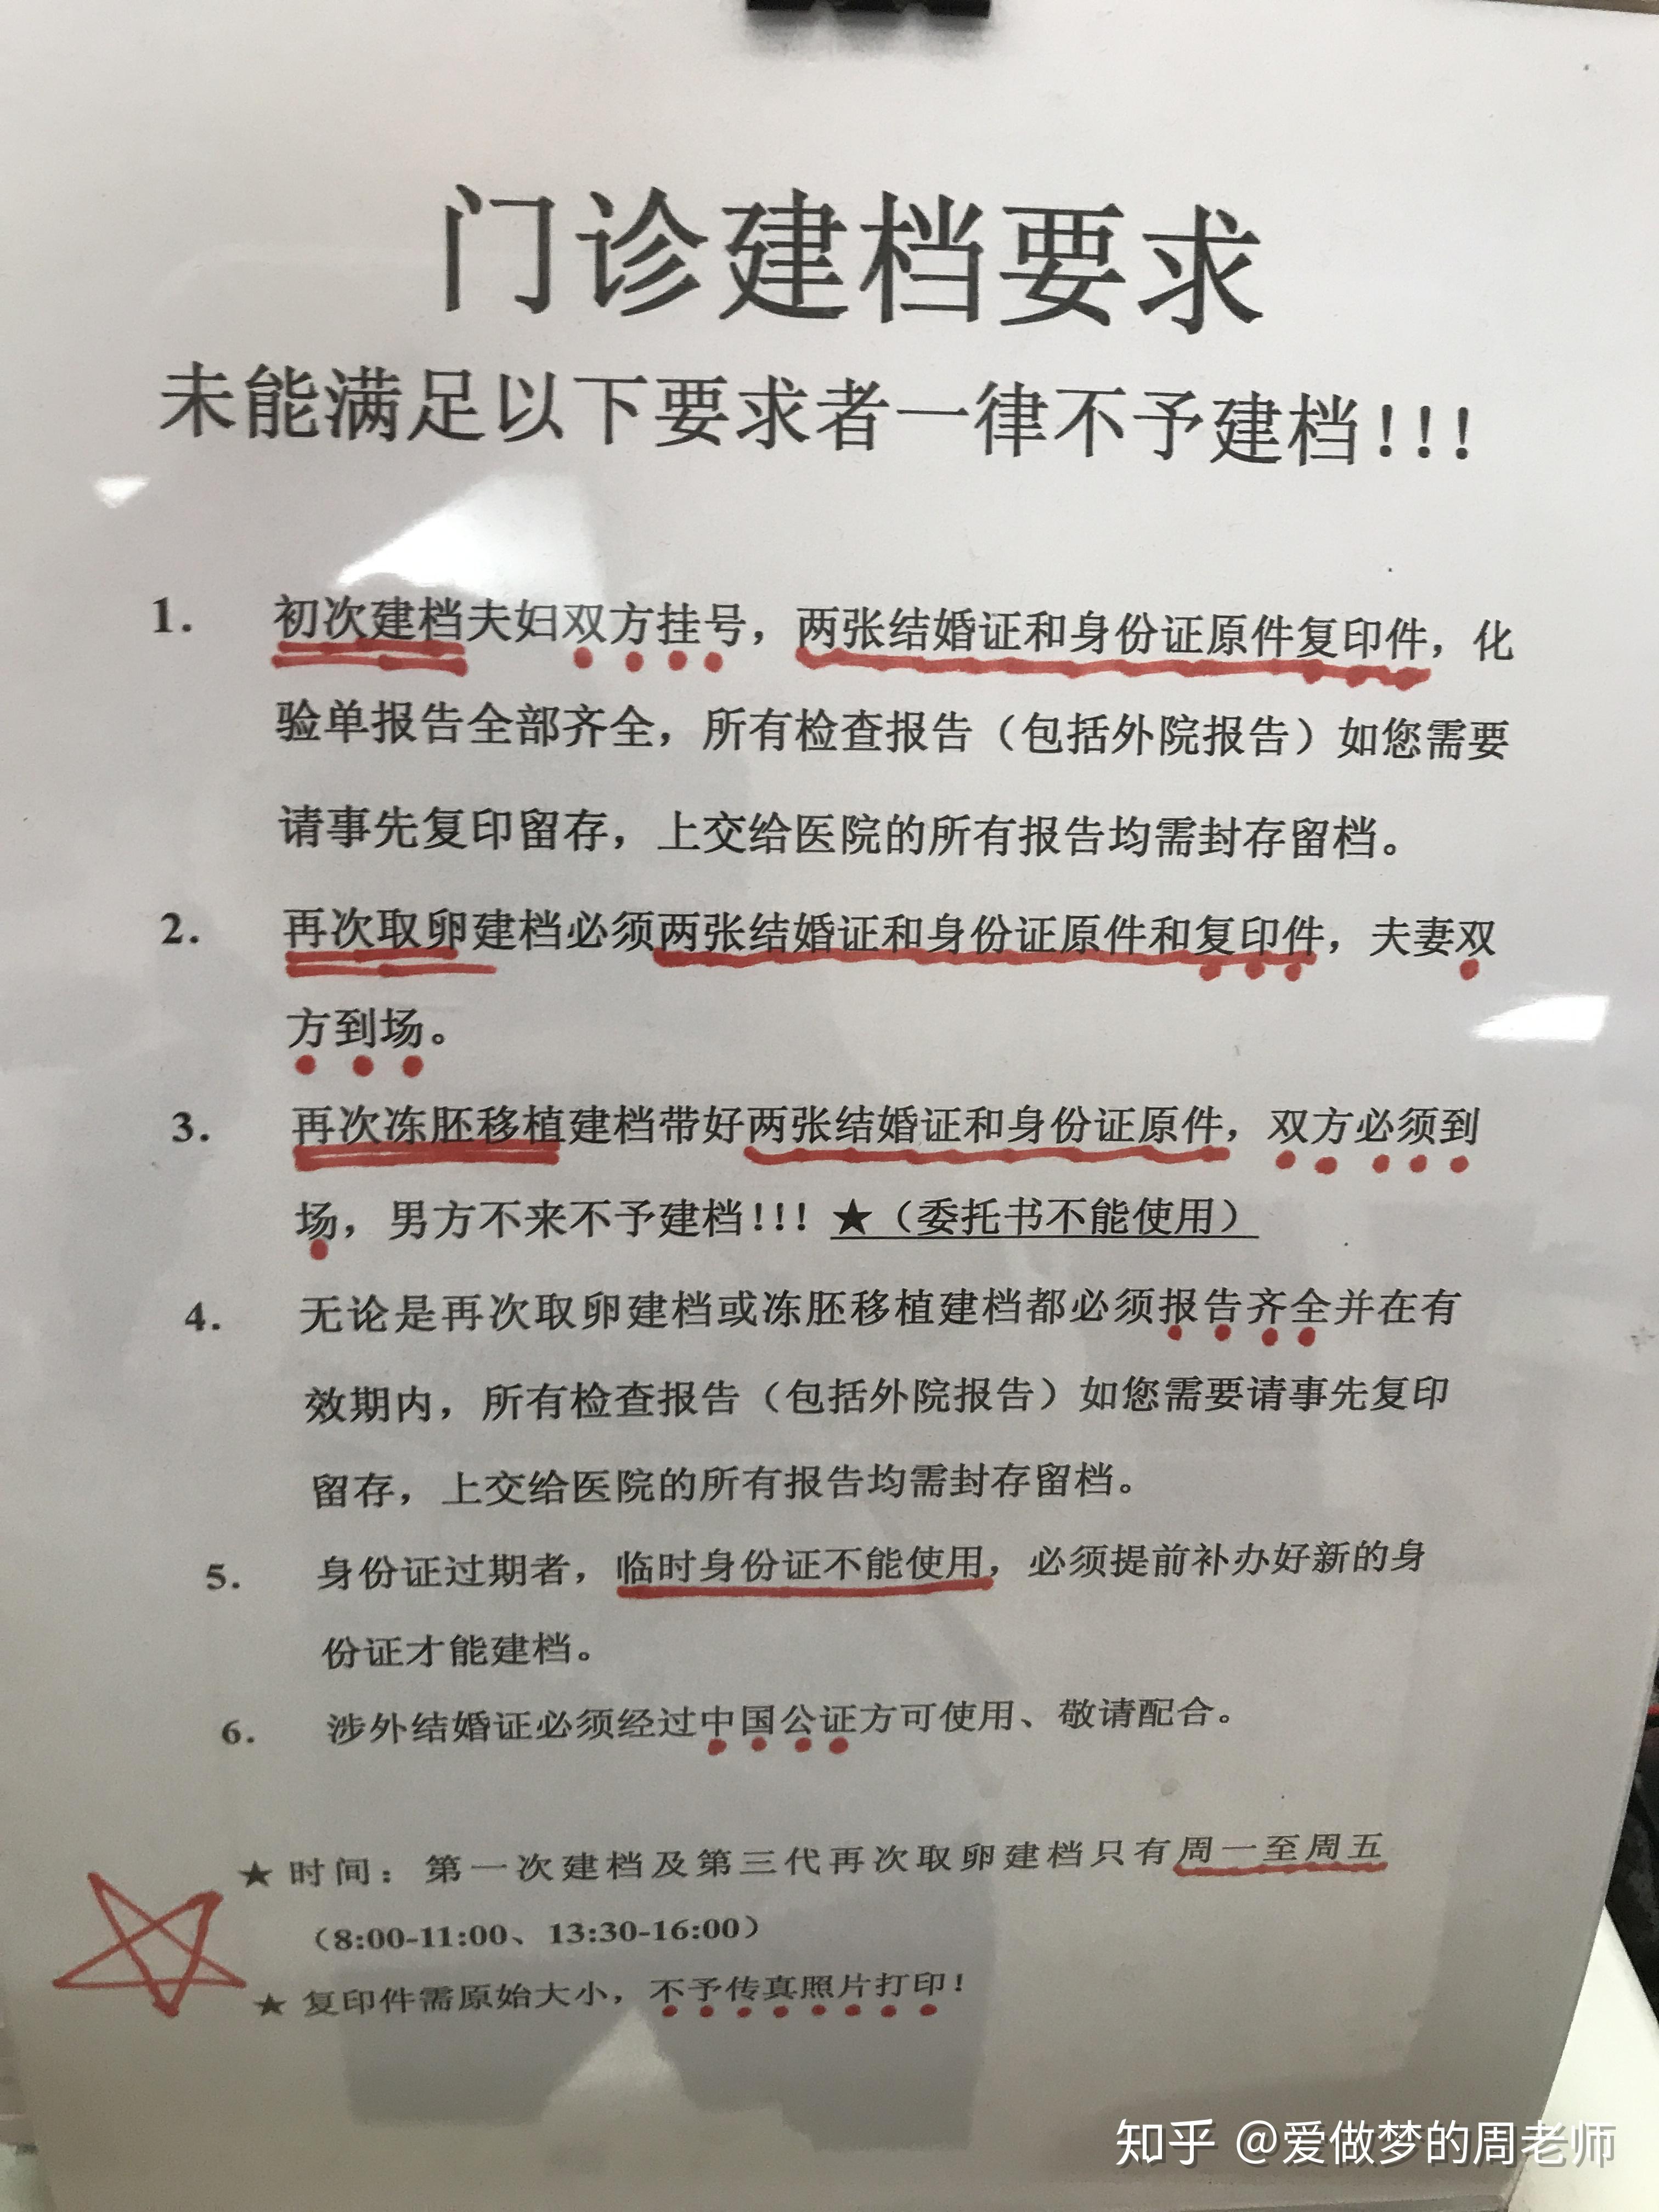 门诊建档要求
未能满足以下要求者一律不予建档！！！
1. 初次建档夫妇双方挂号，两张结婚证和身份证原件复印件，化
验单报告全部齐全，所有检查报告（包括外院报告）如您需要
请事先复印留存，上交给医院的所有报告均需封存留档。
2. 再次取卵建档必须两张结婚证和身份证原件和复印件，夫妻双
方到场。
3. 再次冻胚移植建档带好两张结婚证和身份证原件，双方必须到
场，男方不来不予建档！！！★（委托书不能使用）
4. 无论是再次取卵建档或冻胚移植建档都必须报告齐全并在有
效期内，所有检查报告（包括外院报告）如您需要请事先复印
留存，上交给医院的所有报告均需封存留档。
5. 身份证过期者，临时身份证不能使用，必须提前补办好新的身
份证才能建档。
6. 涉外结婚证必须经过中国公证方可使用、敬请配合。
★ 时间：第一次建档及第三代再次取卵建档只有周一至周五
（8:00-11:00、13:30-16:00）
★ 复印件需原始大小，不予传真照片打印！
知乎 @爱做梦的周老师